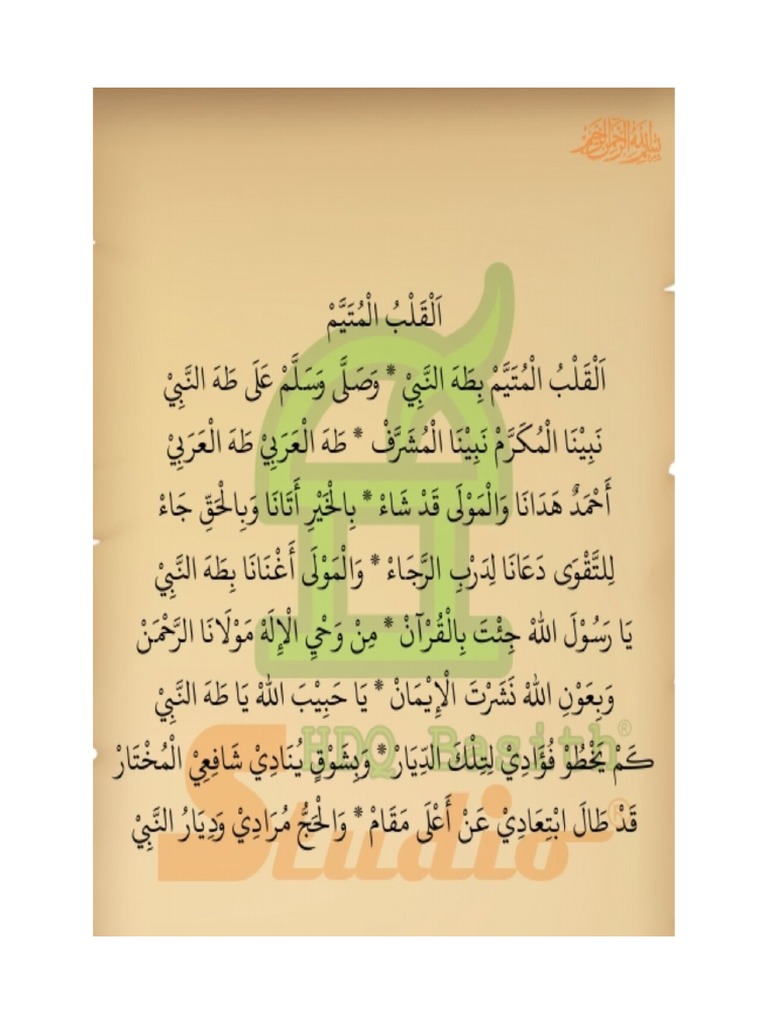 بسم الله الرحمن الرحيم
اَلْقَلْبُ الْمُتَيَّمْ
اَلْقَلْبُ الْمُتَيَّمْ بِطَهَ النَّبِيْ * وَصَلَّى وَسَلَّمْ عَلَى طَهَ النَّبِيْ
نَبِيْنَا الْمُكَرَّمْ نَبِيْنَا الْمُشَرَّفْ * طَهَ الْعَرَبِيْ طَهَ الْعَرَبِيْ
أَحْمَدٌ هَدَانَا وَالْمَوْلَى قَدْ شَاءْ * بِالْخَيْرِ أَتَانَا وَبِالْحَقِّ جَاءْ
لِلتَّقْوَى دَعَانَا لِدَرْبِ الرَّجَاءْ * وَالْمَوْلَى أَغْنَانَا بِطَهَ النَّبِيْ
يَا رَسُوْلَ اللهْ جِئْتَ بِالْقُرْآنْ * مِنْ وَحْيِ الْإِلَهْ مَوْلَانَا الرَّحْمَنْ
وَبِعَوْنِ اللهْ نَشَرْتَ الْإِيْمَانْ * يَا حَبِيْبَ اللهْ يَا طَهَ النَّبِيْ
HDQ Basith®
كَمْ يَخْطُوْ فُؤَادِيْ لِتِلْكَ الدِّيَارْ * وَبِشَوْقٍ يُنَادِيْ شَافِعِيْ الْمُخْتَارْ
Studio
قَدْ طَالَ ابْتِعَادِيْ عَنْ أَعْلَى مَقَامْ * وَالْحَجُّ مُرَادِيْ وَدِيَارُ النَّبِيْ